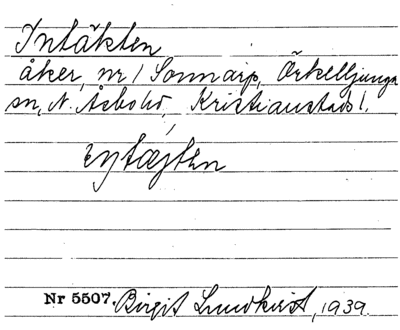 Intäkten
åker, nr 1 Sonnarp, Örkelljunga
sn, N. Åsbohd, Kristianstads l.
Nr 5507. Birgit Lundkvist, 1939.